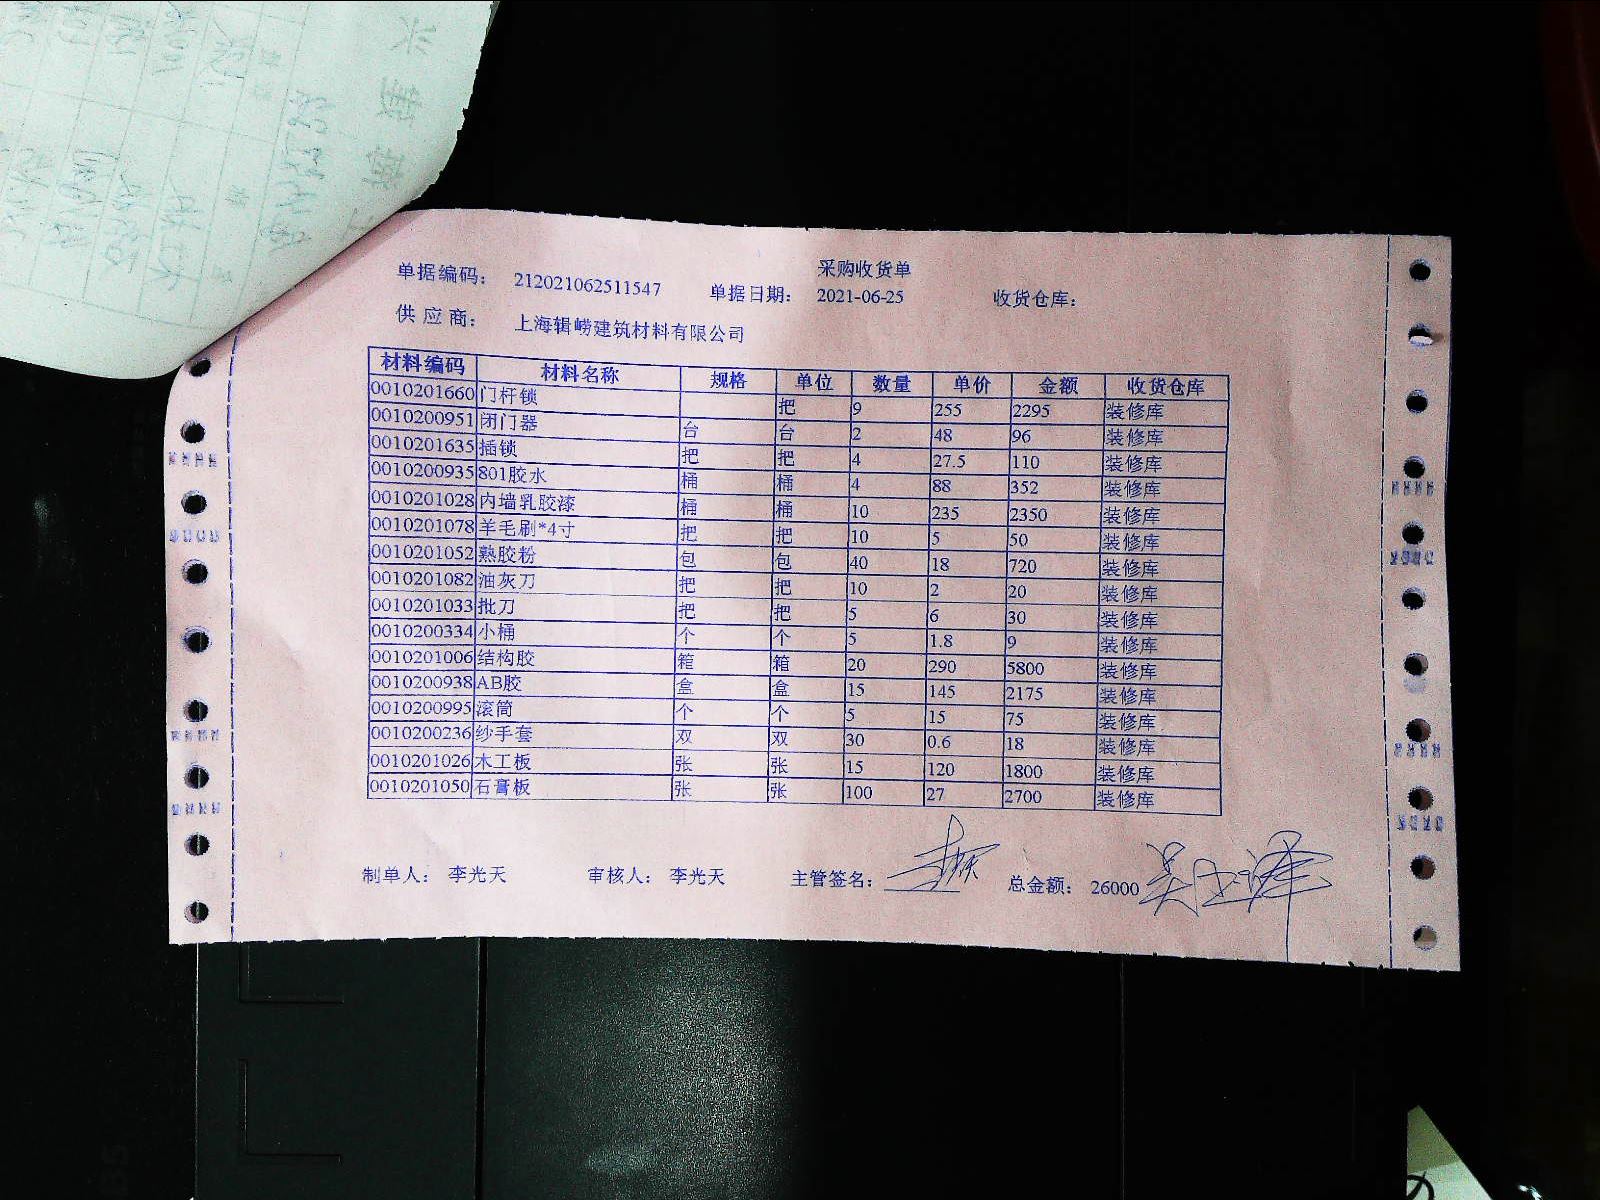 采购收货单
单据编码： 212021062511547 单据日期： 2021-06-25 收货仓库：
供应商： 上海辑崂建筑材料有限公司
材料编码 材料名称 规格 单位 数量 单价 金额 收货仓库
0010201660 门杆锁 把 9 255 2295 装修库
0010200951 闭门器 台 台 2 48 96 装修库
0010201635 插锁 把 把 4 27.5 110 装修库
0010200935 801胶水 桶 桶 4 88 352 装修库
0010201028 内墙乳胶漆 桶 桶 10 235 2350 装修库
0010201078 羊毛刷*4寸 把 把 10 5 50 装修库
0010201052 熟胶粉 包 包 40 18 720 装修库
0010201082 油灰刀 把 把 10 2 20 装修库
0010201033 批刀 把 把 5 6 30 装修库
0010200334 小桶 个 个 5 1.8 9 装修库
0010201006 结构胶 箱 箱 20 290 5800 装修库
0010200938 AB胶 盒 盒 15 145 2175 装修库
0010200995 滚筒 个 个 5 15 75 装修库
0010200236 纱手套 双 双 30 0.6 18 装修库
0010201026 木工板 张 张 15 120 1800 装修库
0010201050 石膏板 张 张 100 27 2700 装修库
制单人： 李光天 审核人： 李光天 主管签名： 总金额： 26000